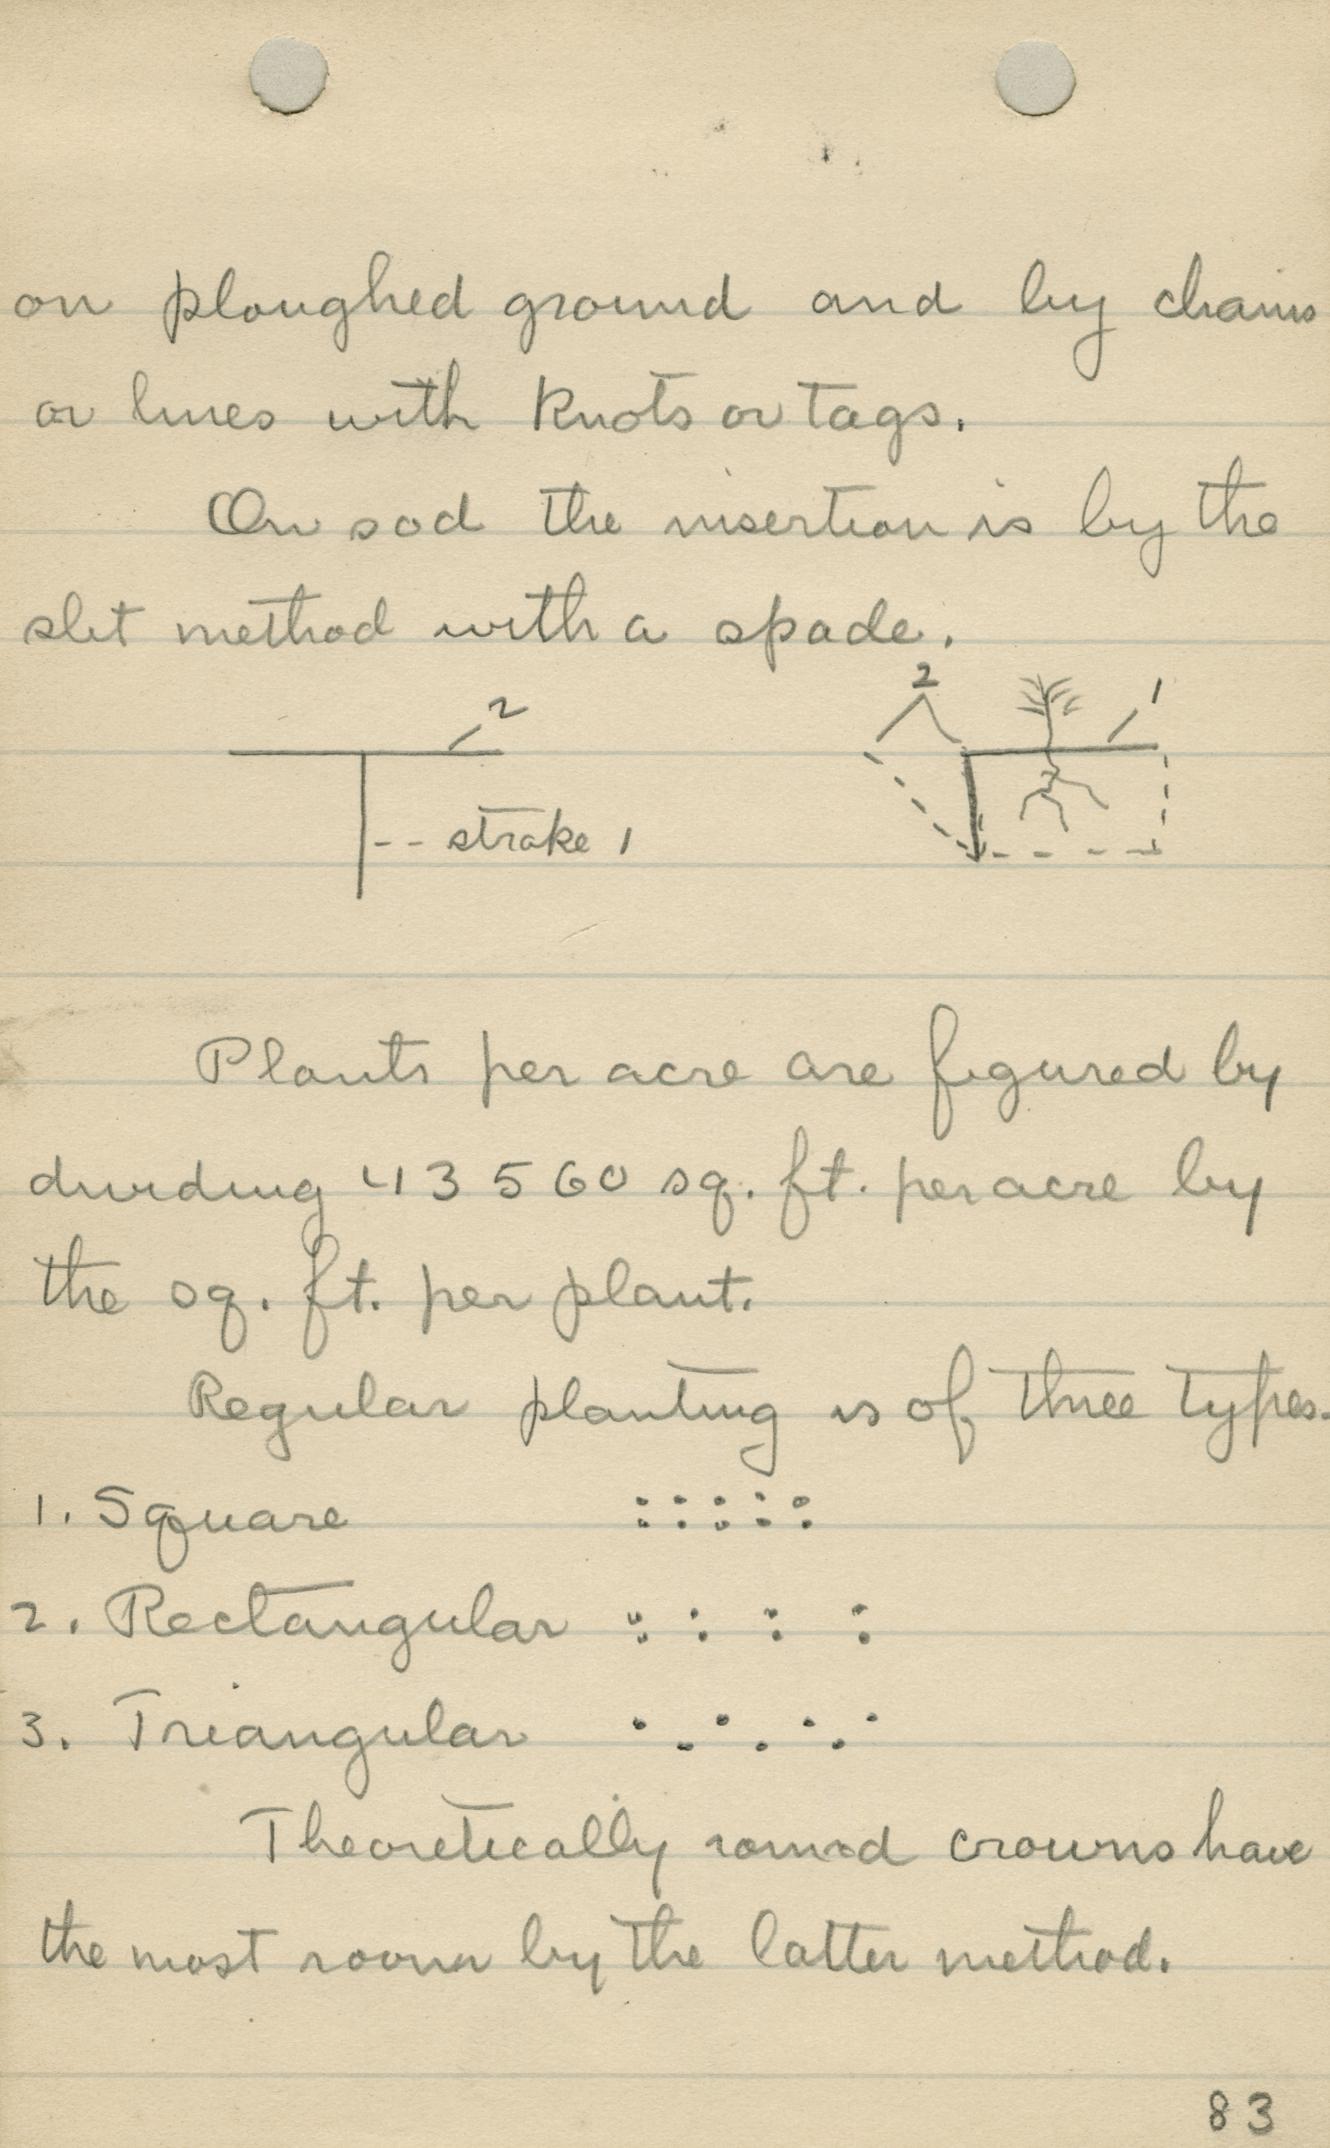 on ploughed ground and by chains
or lines with knots or tags.
On sod the insertion is by the
slit method with a spade.
2
2
1
-- stroke 1
Plants per acre are figured by
dividing 43560 sq. ft. per acre by
the sq. ft. per plant.
Regular planting is of three types.
1. Square
2. Rectangular
3. Triangular
Theoretically round crowns have
the most room by the latter method.
83